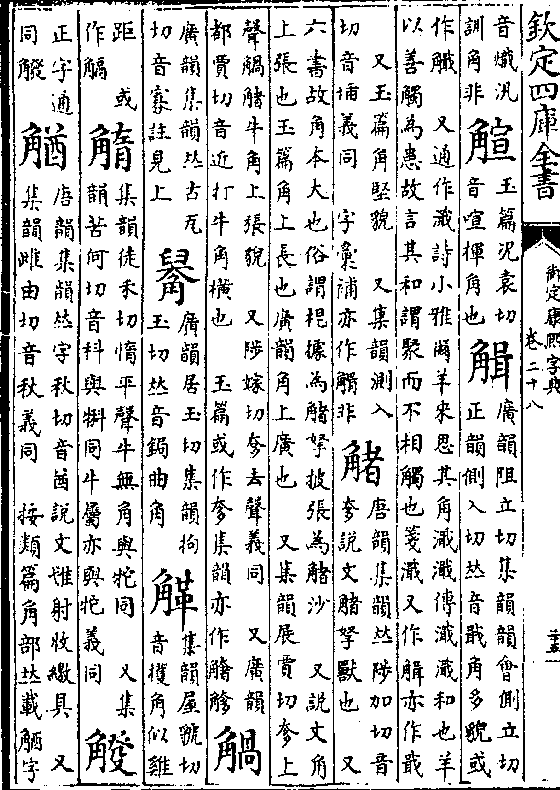 欽定四庫全書
御定康熙字典
卷二十八
音熾汎
訓角非
䚙
玉篇况袁切
音喧揮角也
䚘
廣韻阻立切集韻韻會側立切
正韻側入切𠀤音戢角多貌或
作 又通作濈詩小雅爾羊來思其角濈濈傳濈濈和也羊
以善觸為患故言其和謂聚而不相觸也箋濈又作䚘亦作戢
又玉篇角堅貌 又集韻測入
切音插義同 字彙補亦作觸非
觰
唐韻集韻𠀤陟加切音
奓說文觰拏獸也 又
六書故角本大也俗謂桯據為觰拏披張為觰沙 又說文角
上張也玉篇角上長也廣韻角上廣也 又集韻展賈切奓上
聲觰牛角上張貌 又陟嫁切奓去聲義同 又廣韻
都賈切音近打牛角橫也 玉篇或作奓集韻亦作
廣韻集韻𠀤古瓦
切音寡註見上
廣韻居玉切集韻拘
玉切𠀤音鋦曲角
集韻屋虢切
音擭角似雞
距 或
作
集韻徒禾切惰平聲牛無角與牠同 又集
韻苦何切音科與犐同牛屬亦與牠義同
正字通
同
唐韻集韻𠀤字秋切音酋說文惟射收繳具 又
集韻雌由切音秋義同 按類篇角部𠀤載字